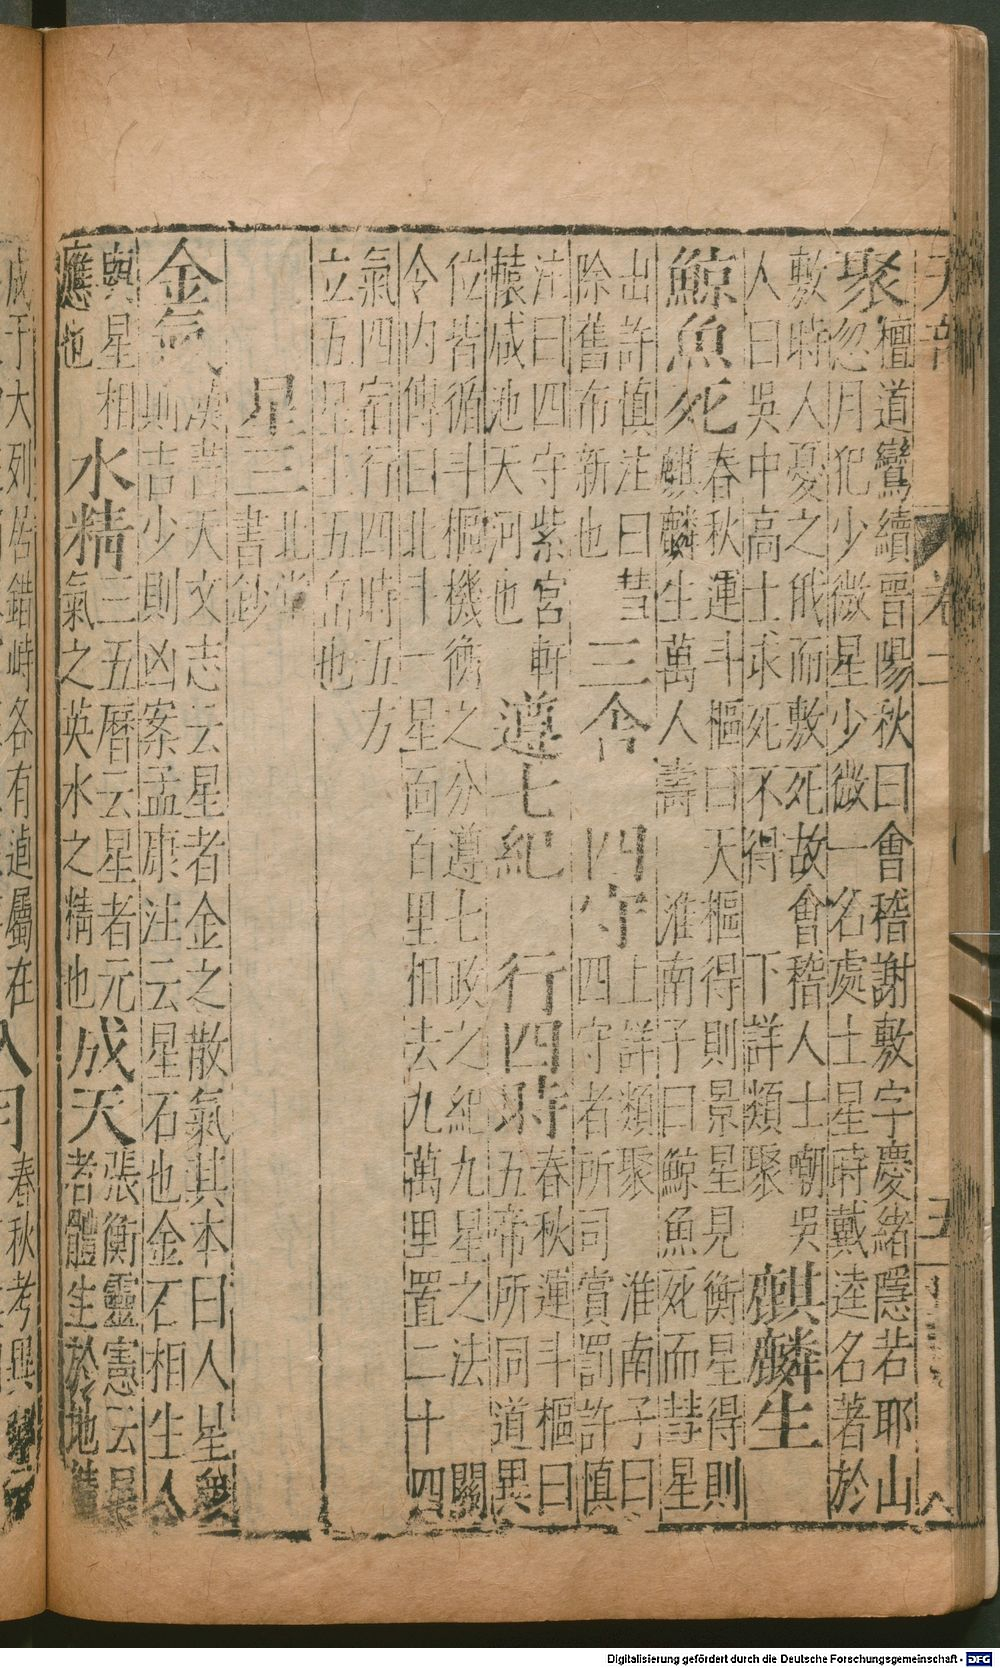 天部 卷二 五
聚
檀道鸞續晉陽秋曰會稽謝敷字慶緒隱若耶山
忽月犯少微星少微一名處士星時戴逵名著於
敷時人憂之俄而敷死故會稽人士嘲吳
人曰吳中高士求死不得 下詳類聚
麒麟生
鯨魚死
春秋運斗樞曰天樞得則景星見衡星得則
麒麟生萬人壽 淮南子曰鯨魚死而彗星
出許慎注曰彗
除舊布新也
三舍 四守
上詳類聚 淮南子曰
四守者所司賞罰許慎
注曰四守紫宮軒
轅咸池天河也
遵七紀 行四時
春秋運斗樞曰
五帝所同道異
位皆循斗樞機衡之分遵七政之紀九星之法 關
令內傳曰北斗一星面百里相去九萬里置二十四
氣四宿行四時五方
立五星主五岳也
星三
北堂
書鈔
金氣
漢書天文志云星者金之散氣其本曰人星衆
則吉少則凶案孟康注云星石也金石相生人
與星相
應也
水精
三五曆云星者元
氣之英水之精也
成天
張衡靈憲云星
者體生於地精
成于大列居錯峙各有逌屬在
春秋考異
Digitalisierung gefördert durch die Deutsche Forschungsgemeinschaft - DFG